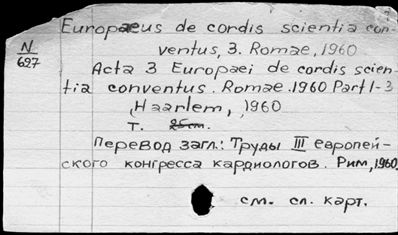 Europaeus de cordis scientia con-
ventus, 3. Romae, 1960
N
627
Acta 3 Europaei de cordis scien-
tia conventus. Romae. 1960 Part 1-3
Haarlem, 1960
т. 25см.
Перевод загл.: Труды III европей-
ского конгресса кардиологов. Рим, 1960.
см. сл. карт.